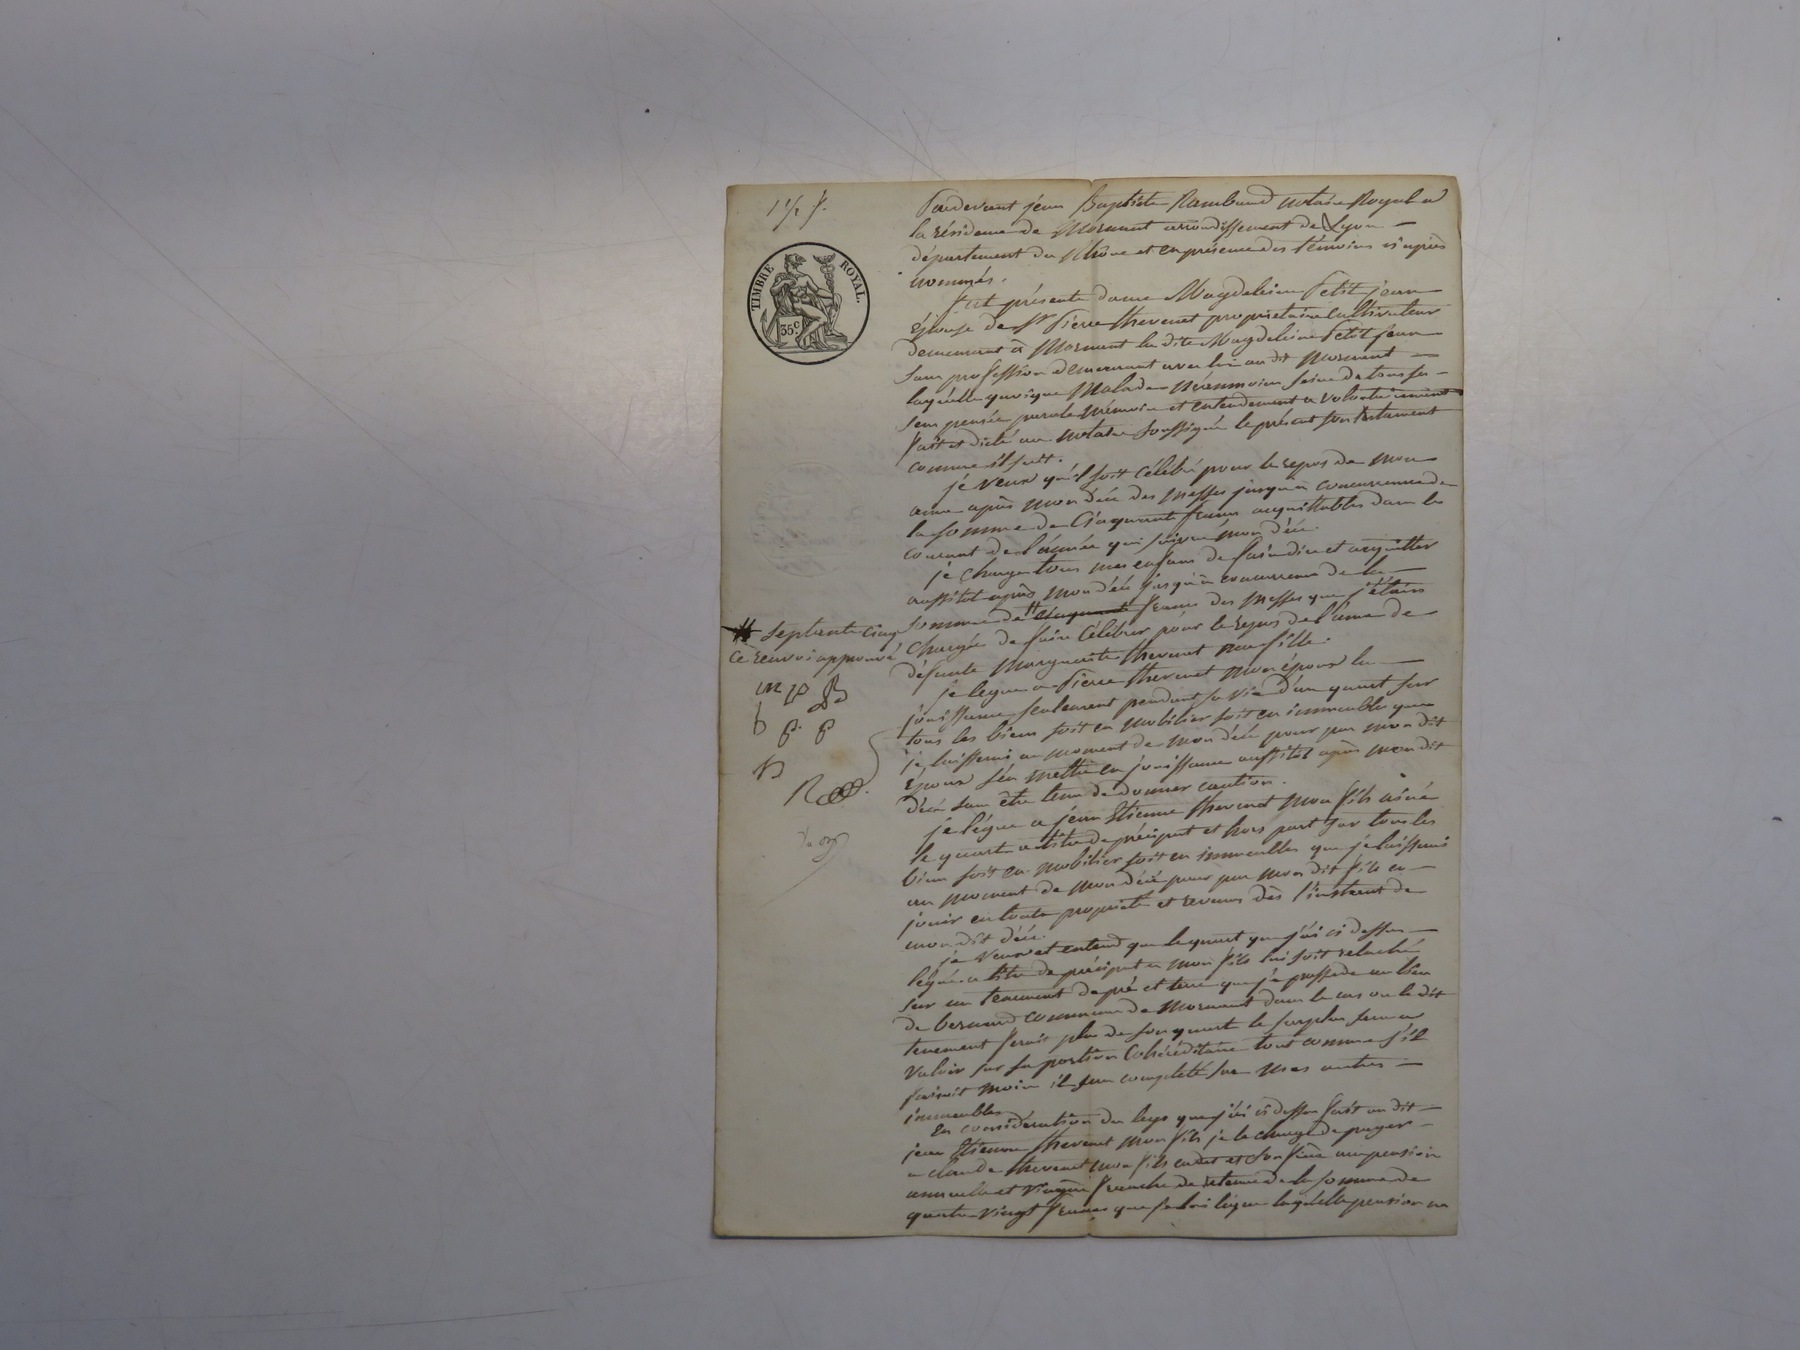 1 1/2 f.
TIMBRE ROYAL.
35 c
Pardevant jean Baptiste Rambaud notaire Royal a
la résidence de Mornant arrondissement de Lyon
département du Rhône et en présence des témoins ci après
nommés.
fut présente dame Magdeleine Petit jean
épouse de Sr Pierre thevenet propriétaire cultivateur
demeurant à Mornant la dite Magdeleine Petit jean
sans profession demeurant avec lui au dit Mornant
laquelle quoique Malade néanmoins saine de tous ses
sens pensée parole mémoire et entendement a volontairement
fait et dicté au notaire soussigné le présent son testament
comme il suit.
je veux qu'il soit célébré pour le repos de mon
ame après mon décé des messes jusqu'à concurrence de
la somme de Cinquante francs acquittables dans le
courant de l'année qui suivra mon décé.
je charge tous mes enfans de faire dire et acquitter
aussitot après mon décé jusqu'à concurrence de la
somme de # cinquante francs des messes que j'étais
chargée de faire célébrer pour le repos de l'ame de
défunte Marguerite thevenet ma fille.
# septante cinq
ce renvoi approuvé
je legue a Pierre thevenet mon époux la
jouissance seulement pendant sa vie d'un quart sur
tous les biens soit en mobilier soit en immeubles que
je laisserai au moment de mon décé pour par mon dit
époux s'en mettre en jouissance aussitot après mon dit
décé sans être tenu de donner caution.
je légue a jean Etienne thevenet mon fils ainé
le quart a titre de préciput et hors part sur tous les
biens soit en mobilier soit en immeubles que je laisserai
au moment de mon décé pour par mon dit fils en
jouir en toute propriété et revenus dès l'instant de
mon dit décé.
je veux et entend que le quart que j'ai ci dessus
légué a titre de préciput a mon fils lui soit relaché
sur un tenement de pré et terre que je possede au lieu
de bernand commune de Mornant dans le cas ou le dit
tenement ferait plus de son quart le surplus sera a
valoir sur sa portion cohéréditaire tout comme s'il
faisait moins il sera completté sur mes autres
immeubles.
En considération du legs que j'ai ci dessus fait au dit
jean Etienne thevenet mon fils je le charge de payer
a claude thevenet mon fils cadet et son frère une pension
annuelle et viagère franche de retenue de la somme de
quatre vingt francs que je lui legue laquelle pension